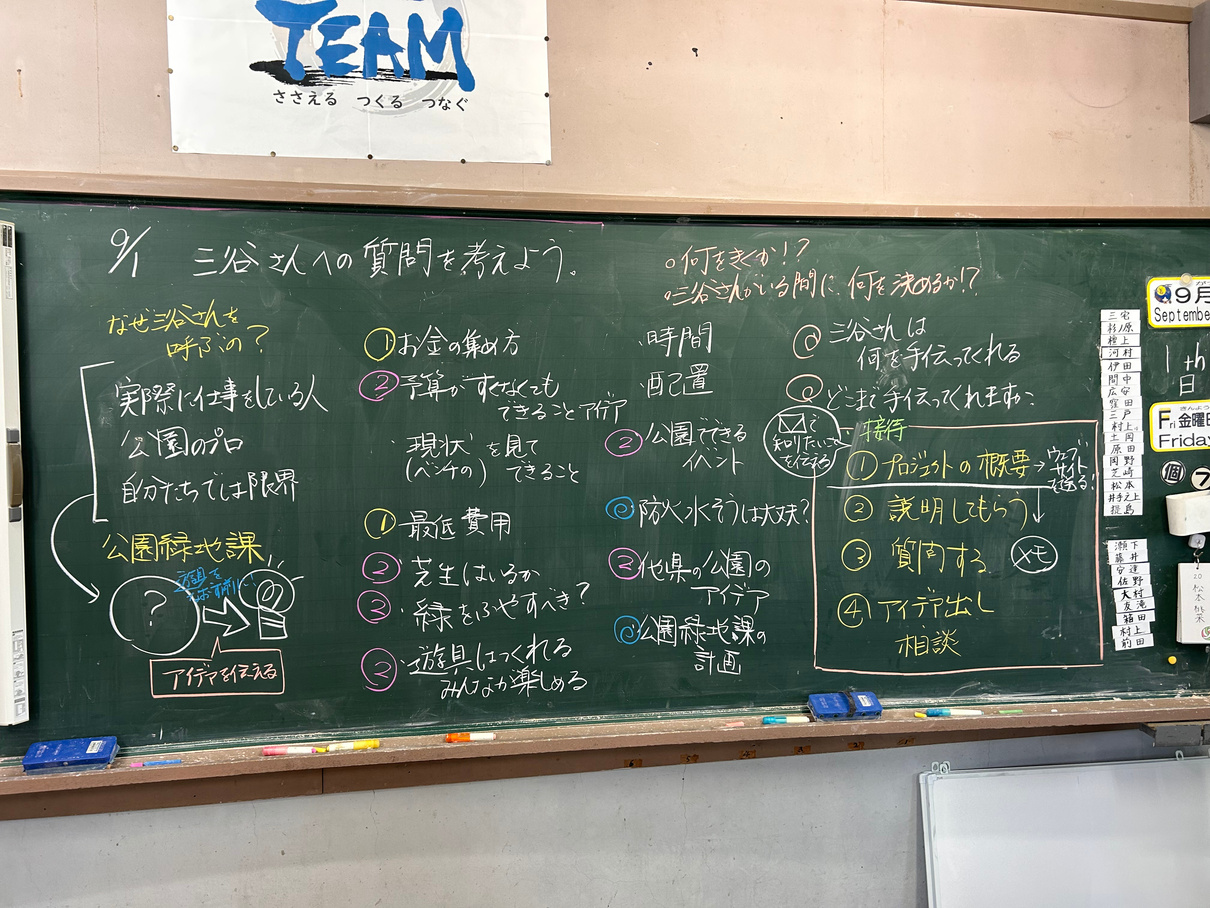 TEAM
ささえる つくる つなぐ
9/1 三谷さんへの質問を考えよう。
○何をきくか!?
○三谷さんがいる間に、何を決めるか!?
なぜ三谷さんを
呼ぶの?
実際に仕事をしている人
公園のプロ
自分たちでは限界
公園緑地課
?
遊具を
アイデアを伝える
① お金の集め方
② 予算がすくなくても
できることアイデア
現状を見て
(ベンチの) できること
① 最低費用
② 芝生はいるか
③ 緑をふやすべき?
② 遊具はつくれる
みんなが楽しめる
時間
配置
② 公園でできる
イベント
防火水そうは大丈夫?
② 他県の公園の
アイデア
公園緑地課の
計画
三谷さんは
何を手伝ってくれる
どこまで手伝ってくれますか
で
知りたいこと
を伝える
接待
① プロジェクトの概要→ウェブサイトを送る!
② 説明してもらう
③ 質問する メモ
④ アイデア出し
相談
三宅
杉ノ原
樫上
河村
伊田
間中
広安
窪田
三戸
村上
土岡
原田
岡野
芝崎
松本
井手之上
槌島
瀬下
藤井
安達
佐野
大村
友滝
箱田
村上
前田
9月
Septembe
1th
日
きんよう
Fri 金曜日
Friday
個